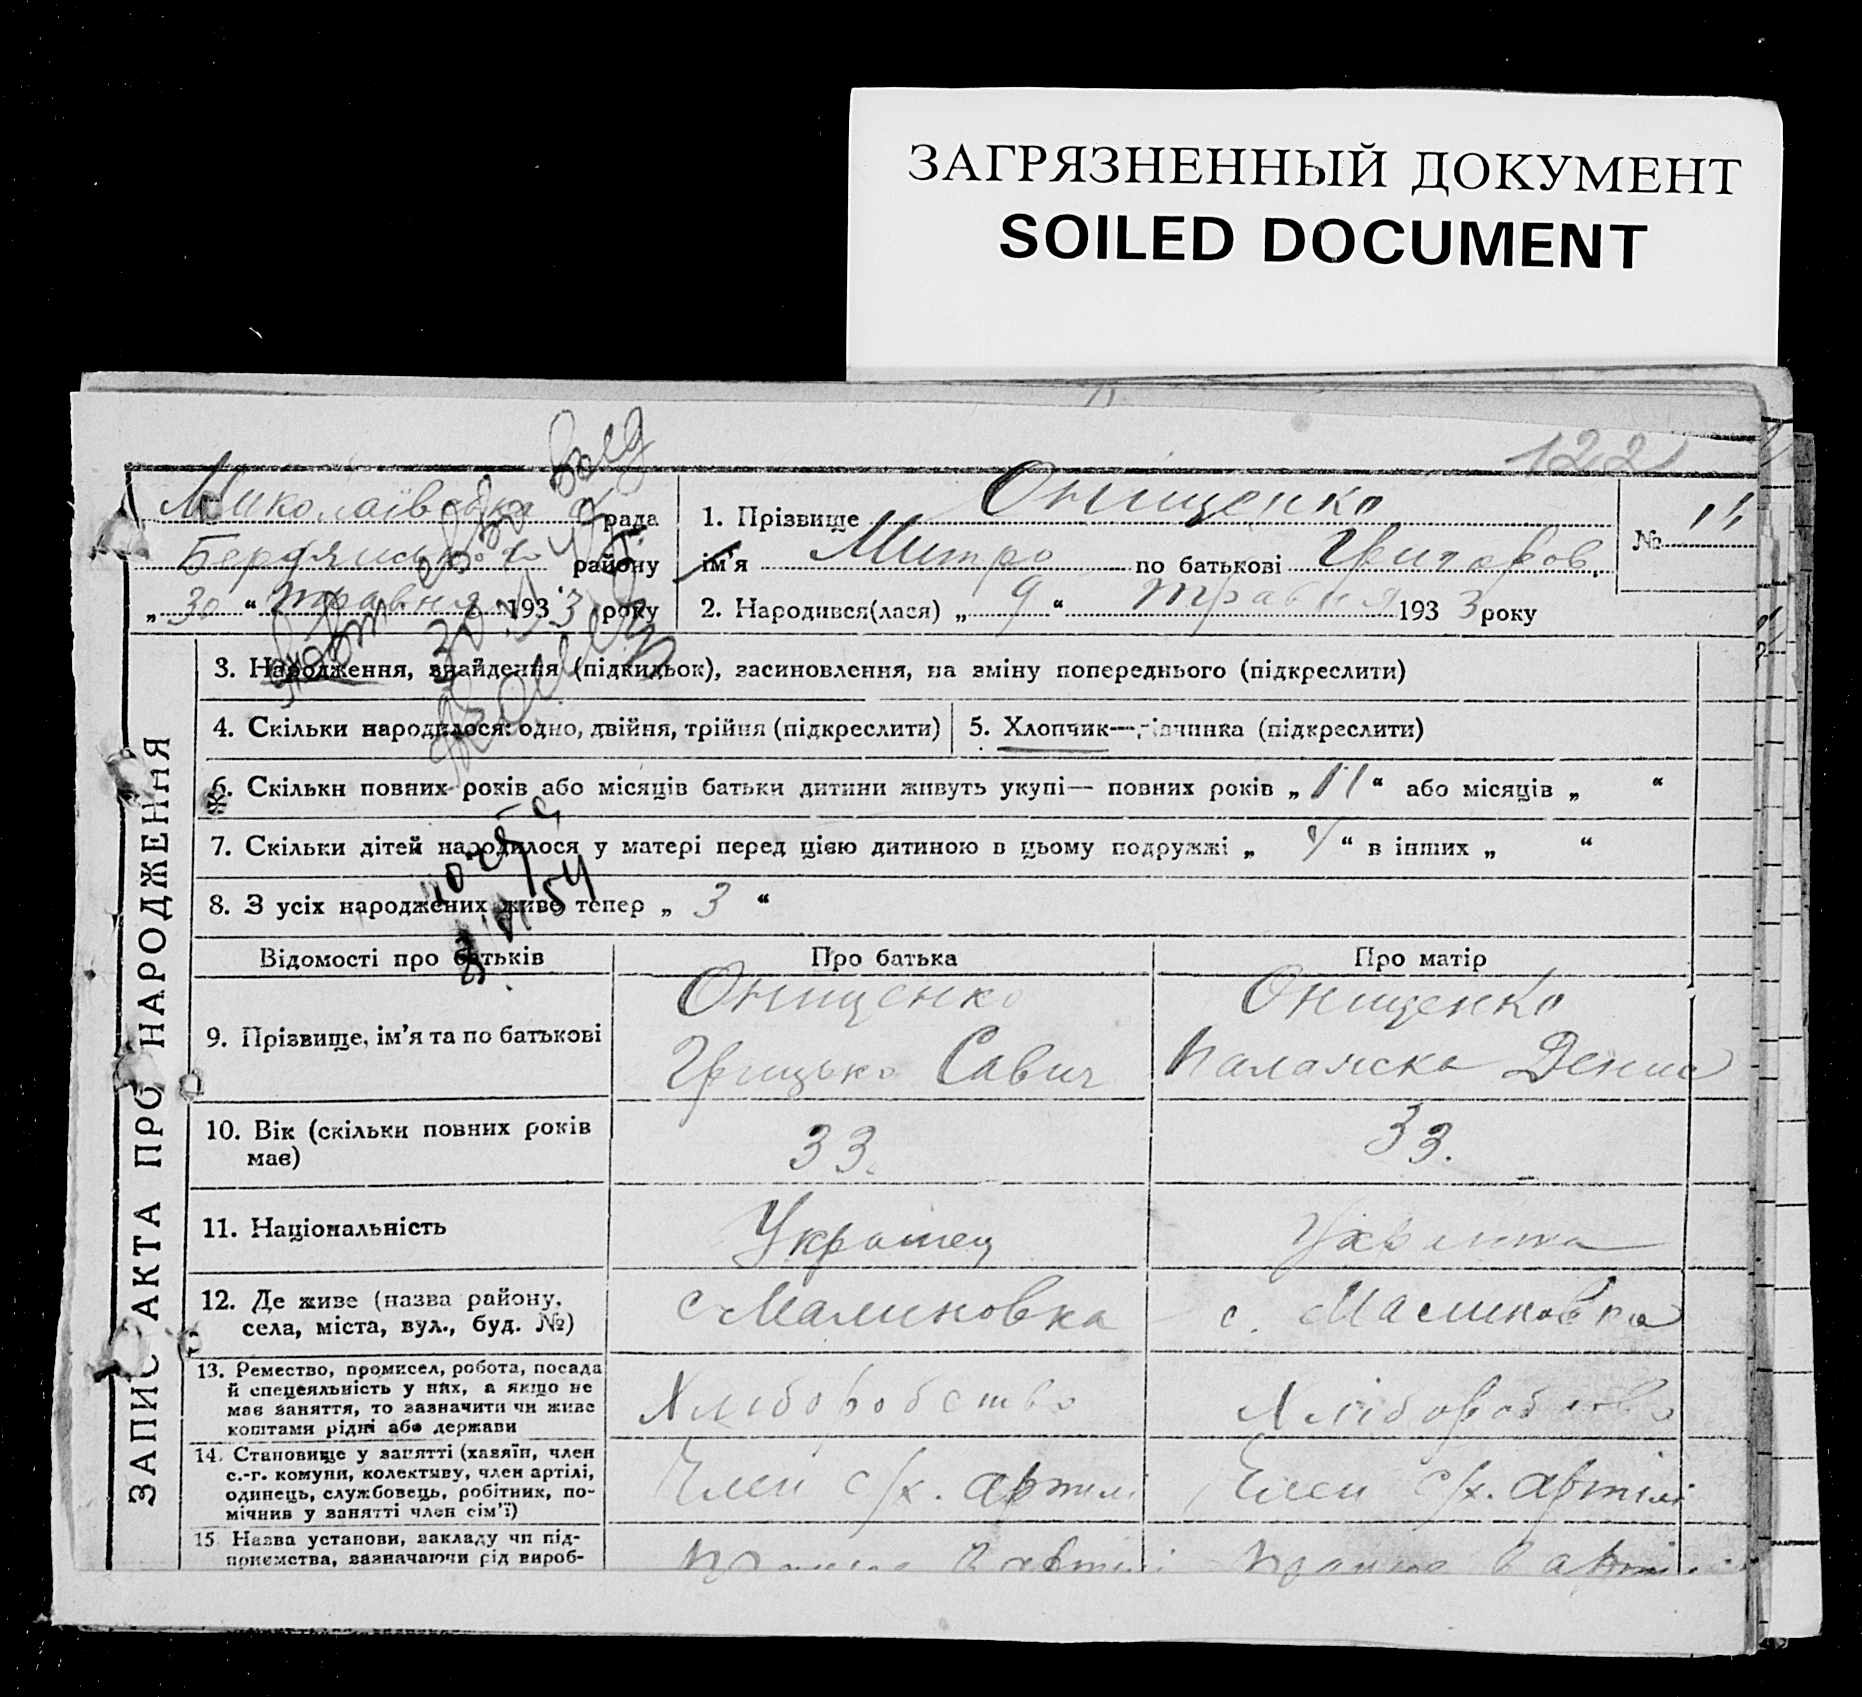 ЗАГРЯЗНЕННЫЙ ДОКУМЕНТ
SOILED DOCUMENT
1221
Миколаївська с/рада
Бердянського району
„30“ травня 1933 року
1. Прізвище Онищенко
ім’я Митро по батькові Григоров.
2. Народився(лася) „9“ травня 1933 року
№ 11
ЗАПИС АКТА ПРО НАРОДЖЕННЯ
3. Народження, знайдення (підкидьок), засиновлення, на зміну попереднього (підкреслити)
4. Скільки народилося: одно, двійня, трійня (підкреслити)
5. Хлопчик—дівчинка (підкреслити)
6. Скільки повних років або місяців батьки дитини живуть укупі— повних років „11“ або місяців „ “
7. Скільки дітей народилося у матері перед цією дитиною в цьому подружжі „ “ в інших „ “
8. З усіх народжених живе тепер „3“
Відомості про батьків
Про батька
Про матір
9. Прізвище, ім’я та по батькові
Онищенко
Грицько Савич
Онищенко
Палажка Денис
10. Вік (скільки повних років
має)
33.
33.
11. Національність
Українец
12. Де живе (назва району,
села, міста, вул., буд. №)
с Малиновка
с. Малиновка
13. Ремество, промисел, робота, посада
й спецеяльність у них, а якщо не
має заняття, то зазначити чи живе
коштами рідні або держави
Хліборобство
Хліборобство
14. Становище у занятті (хазяїн, член
с.-г. комуни, колективу, член артілі,
одинець, службовець, робітник, по-
мічник у занятті член сім’ї)
Член с/х. артилі
Член с/х. артілі
15 Назва установи, закладу чи під-
приємства, зазначаючи рід вироб-